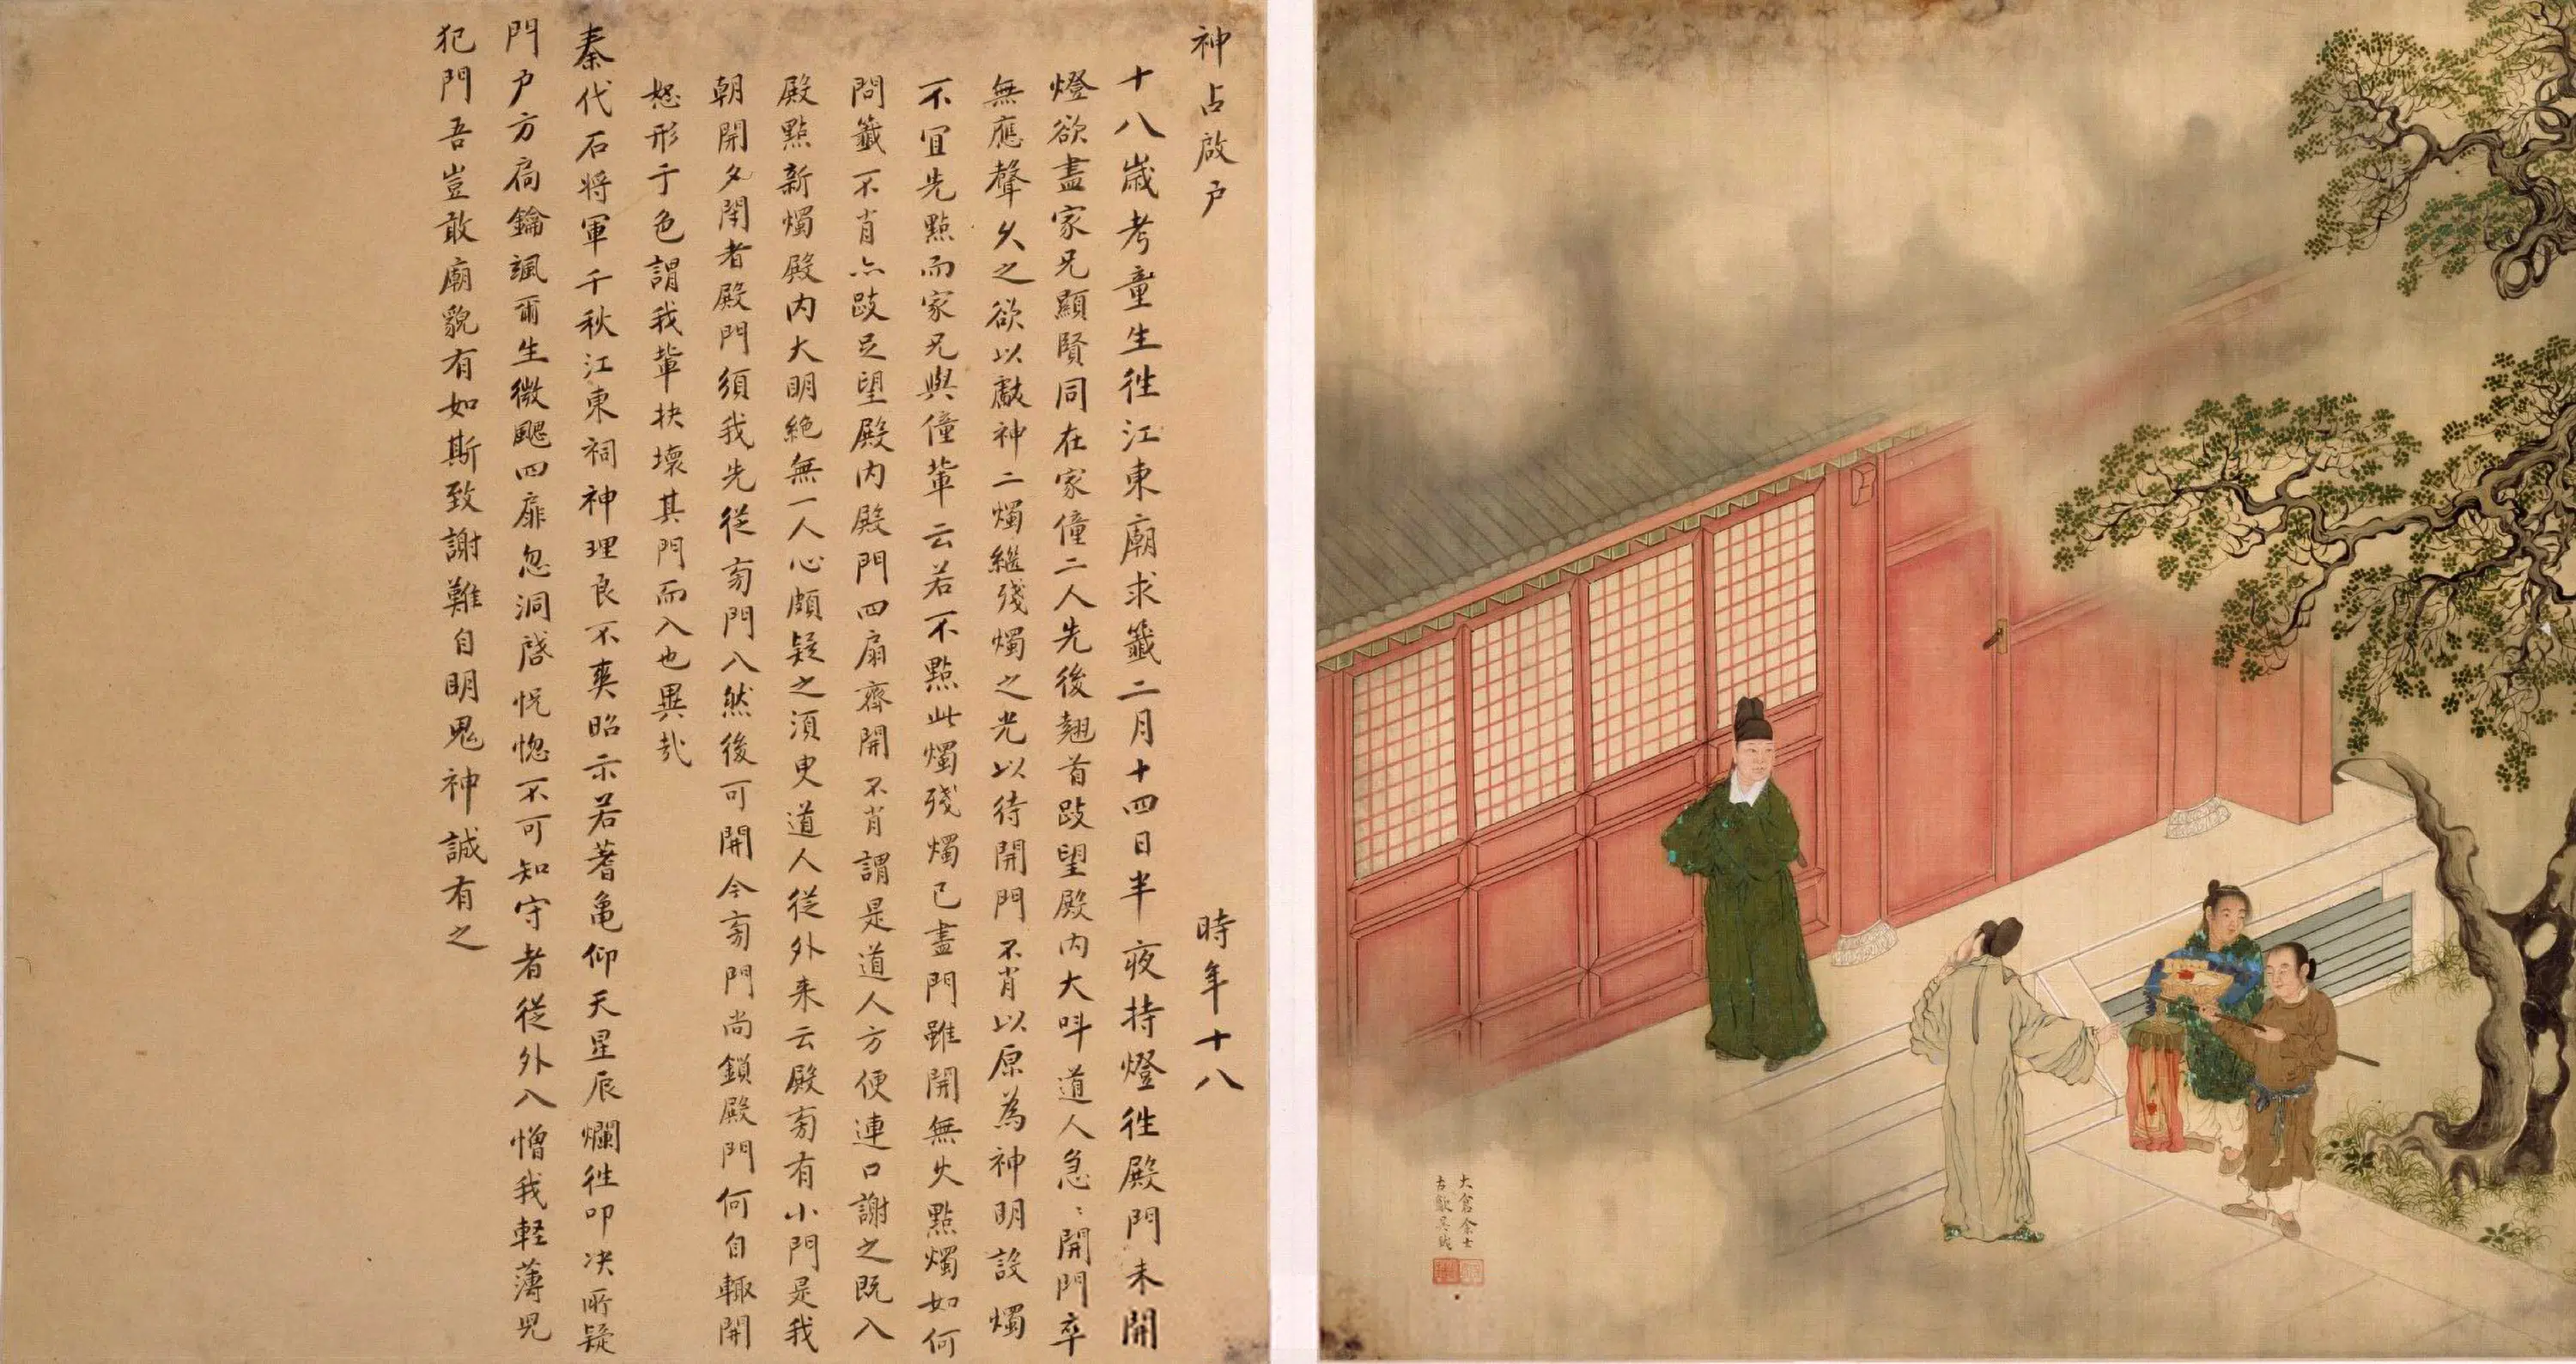 神占啟户 時年十八
十八歲考童生徃江東廟求籤二月十四日半夜持燈徃殿門未開
燈欲盡家兄顯賢同在家僮二人先後翹首跂望殿內大呌道人急〻開門卒
無應聲久之欲以獻神二燭繼殘燭之光以待開門不肖以原為神明設燭
不宜先點而家兄與僮輩云若不點此燭殘燭已盡門雖開無火點燭如何
問籤不肖亦跂足望殿內殿門四扇齊開不肖謂是道人方便連口謝之既入
殿點新燭殿內大明絕無一人心頗疑之須臾道人從外来云殿旁有小門是我
朝開夕閉者殿門須我先從旁門入然後可開今旁門尚鎖殿門何自輙開
怒形于色謂我輩抉壞其門而入也異哉
秦代石將軍千秋江東祠神理良不爽昭示若蓍龜仰天星辰爛徃叩决所疑
門户方扃鑰颯爾生微颸四扉忽洞啓怳惚不可知守者從外入憎我軽薄兒
犯門吾豈敢廟貌有如斯致謝難自明鬼神誠有之
太倉余士
古歙吳鉞